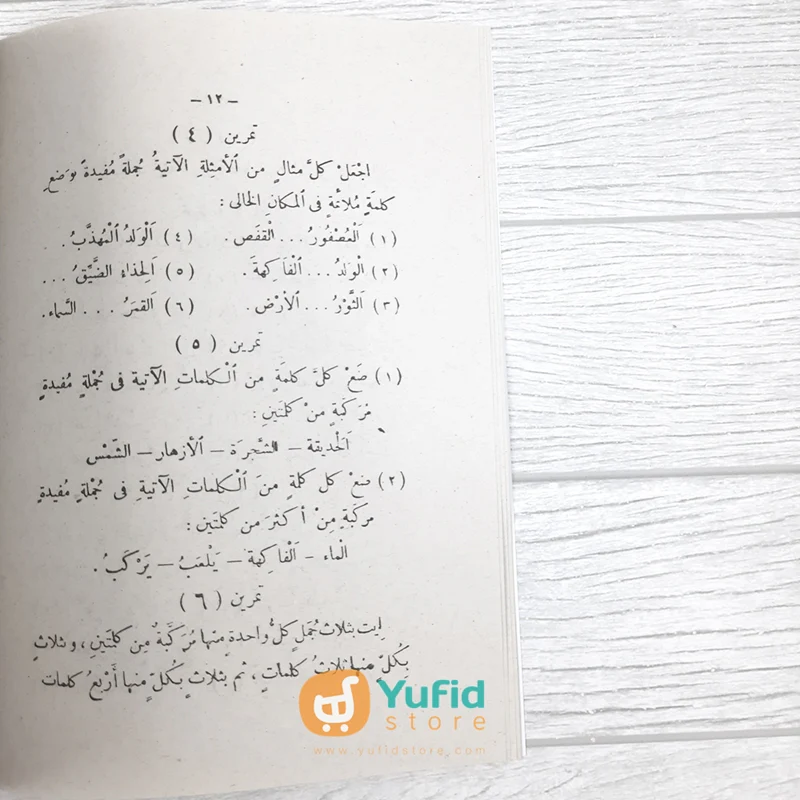 – ١٢ –
تمرين ( ٤ )
اجْعَلْ كلَّ مثالٍ من اَلأمثِلةِ الآتيةُ جُملةً مُفيدةً بوَضعِ
كلمَةٍ مُلائمةٍ فى اَلمكانِ الخالى :
(١) اَلْعُصْفُورُ . . . اَلْقفَص .    (٤) اَلْوَلدُ اَلْمهَذَّبُ . .
(٢) اَلْولدُ . . . اَلْفاكهةَ .    (٥) اَلحِذاء الضَّيِّقُ . . .
(٣) اَلثَّوْرُ . . . اَلأرْض .    (٦) اَلقمَرُ . . . السَّماء .
تمرين ( ٥ )
(١) ضَعْ كلَّ كلمَةٍ من اَلْكلماتِ الآتية فى جُمْلةٍ مُفيدةٍ
مُركّبةٍ مِنْ كلمَتَينِ :
اَلحديقة – الشَّجرَة – اَلأزهار – الشَّمْس
(٢) ضعْ كل كلمةٍ منَ اَلْكلماتِ الآتية فى جُمْلةٍ مُفيدةٍ
مركبَةٍ مِنْ أكثرَ من كلمَتَين :
اَلْماء – اَلْفاكهة – يَلْعَبُ – يَرْكَبُ .
تمرين ( ٦ )
اِيت بثلاث جُمَلٍ كلُّ واحدةٍ منها مُرَكَّبةٌ مِن كلمَتَينِ ، وثلاثٍ
بكُلٍّ منها ثلاثُ كلماتٍ ، ثم بثلاثٍ بكُلٍّ منها أرْبعُ كلمات
Yufid
store
www.yufidstore.com